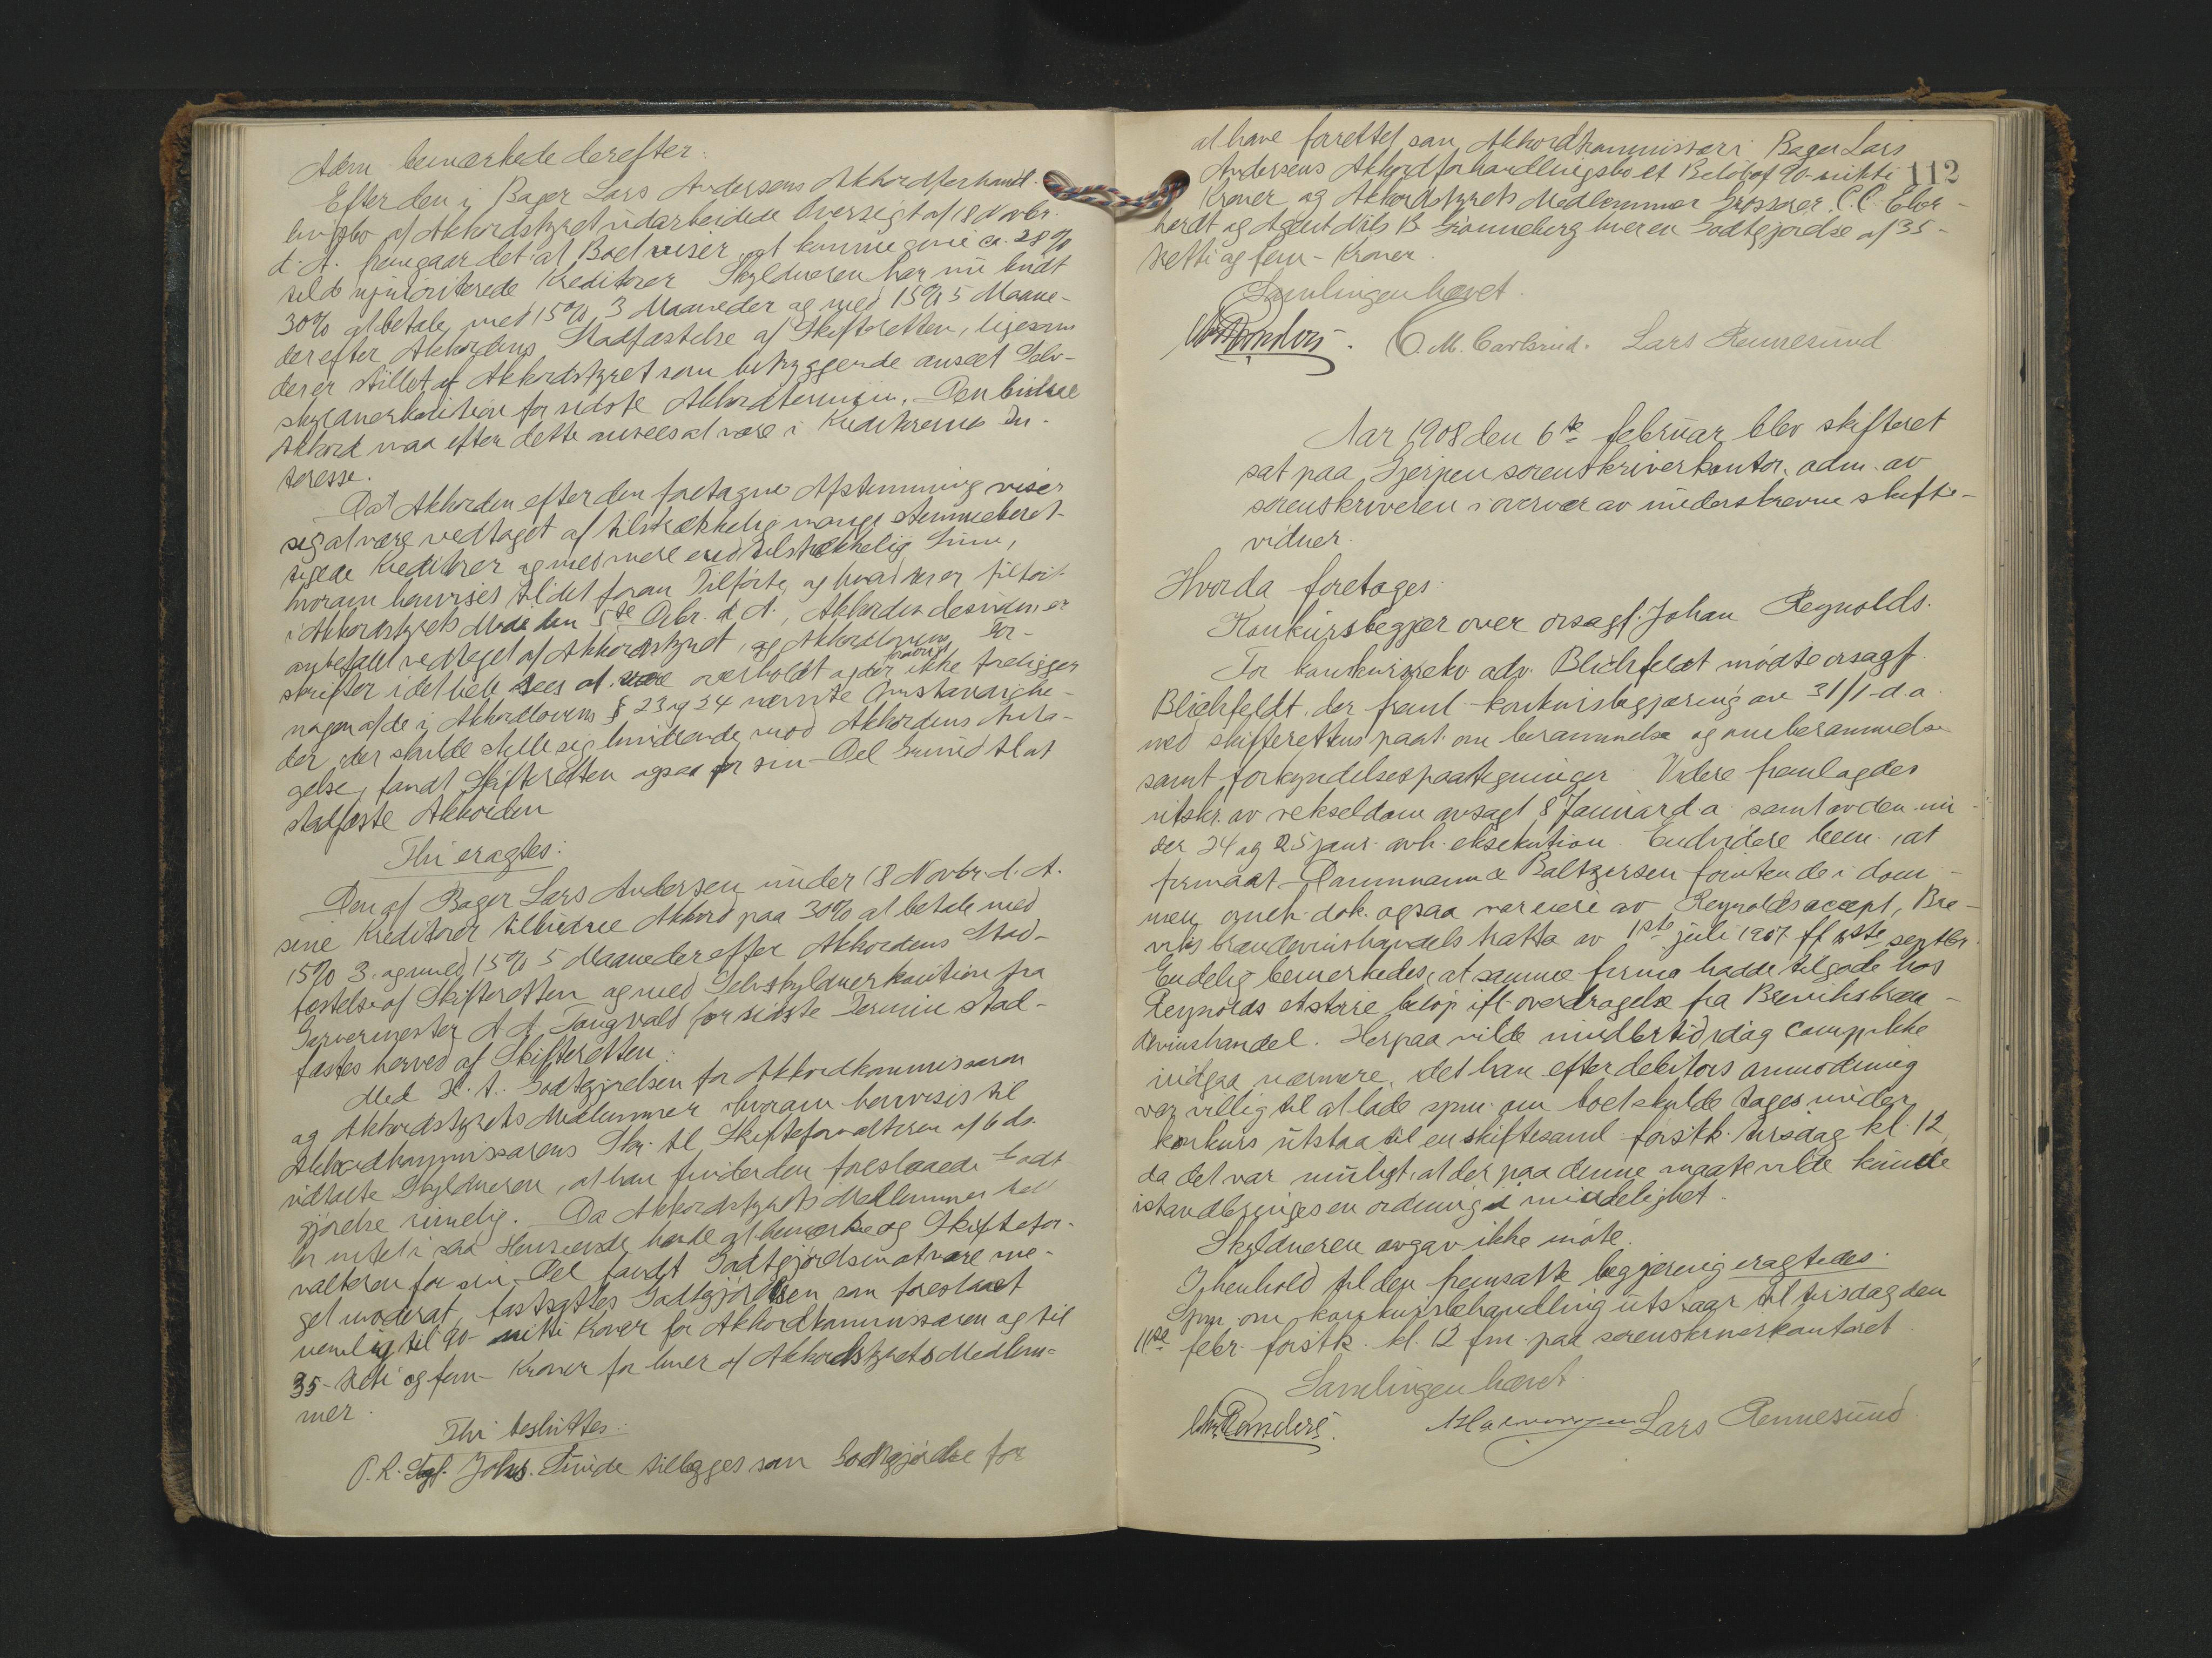 Adm. bemærkede derefter:
Efter den i Bager Lars Andersens Akkordforhand-
lingsbo af Akkordstyret udarbeidede Oversigt af 18 Novbr.
d. A. fremgaar det at Boet viser at kunne give ca. 28%
til de uprioriterede Kreditorer Skyldneren har nu budt
30% at betale med 15% 3 Maaneder og med 15% 5 Maane-
der efter Akkordens Stadfæstelse af Skifteretten, ligesom
der er stillet af Akkordstyret som betryggende anseet Selv-
skyldnerkaution for sidste Akkordtermin. Den budne
Akkord maa efter dette ansees at være i Kreditorernes In-
teresse.
Da Akkorden efter den foretagne Afstemning viser
sig at være vedtaget af tilstrækkelig mange stemmeberet-
tigede Kreditorer og med mere end tilstrækkelig Sum,
hvorom henvises til det foran Tilførte, og hvad der er tilført
i Akkordstyrets Møde den 5te Dcbr. d. A., Akkorden desuden er
anbefalet vedtaget af Akkordstyret, og Akkordlovens For-
skrifter i det hele sees at være overholdt og der forøvrigt ikke foreligger
nogen af de i Akkordlovens § 23 og 24 nævnte Omstændighe-
der, der skulde stille sig hindrende mod Akkordens Anta-
gelse, fandt Skifteretten ogsaa for sin Del Grund til at
stadfæste Akkorden
Thi eragtes:
Den af Bager Lars Andersen under 18 Novbr. d. A.
sine Kreditorer tilbudne Akkord paa 30% at betale med
15% 3. og med 15% 5 Maaneder efter Akkordens Stad-
fæstelse af Skifteretten og med Selvskyldnerkaution fra
Garvermester A. A. Tangvald for sidste Termin stad-
fæstes herved af Skifteretten.
Med H. t. Godtgjørelsen for Akkordkommissæren
og Akkordstyrets Medlemmer hvorom henvises til
Akkordkommissærens Skr. til Skifteforvalteren af 6 ds.
udtalte Skyldneren, at han finder den foreslaaede Godt-
gjørelse rimelig. Da Akkordstyrets Medlemmer hel-
ler intet i saa Henseende havde at bemærke og Skiftefor-
valteren for sin Del fandt Godtgjørelsen at være me-
get moderat, fastsattes Godtgjørelsen som foreslaaet
nemlig til 90 - nitti Kroner for Akkordkommissæren og til
35 - tretti og fem - Kroner for hver af Akkordstyrets Medlem-
mer.
Thi besluttes:
O.R. Sagf. Johs. Lunde tillægges som Godtgjørelse for
112
at have forrettet som Akkordkommissær i Bager Lars
Andersens Akkordforhandlingsbo et Beløb af 90 - nitti
Kroner og Akkordstyrets Medlemmer Grosserer C.C. Eber-
hardt og Agent Nils B. Grønneberg hver en Godtgjørelse af 35 -
tretti og fem - Kroner.
Samlingen hævet.
C. M. Carlsrud. Lars Rennesund
Aar 1908 den 6te februar blev skifteret
sat paa Gjerpen sorenskriverkontor, adm. av
sorenskriveren i overvær av underskrevne skifte-
vidner.
Hvorda foretages:
Konkursbegjær over orsagf. Johan Reynolds.
For konkursrekv. adv. Blichfeldt mødte orsagf.
Blichfeldt, der freml. konkursbegjæring av 31/1 d. a.
med skifterettens paat. om berammelse og omberammelse
samt forkyndelsespaategninger. Videre fremlagdes
utskr. av vekseldom avsagt 8 Januar d. a. samt av den un-
der 24 og 25 janr. avh. eksekution. Endvidere bem. at
firmaet Dammann & Baltzersen foruten de i dom-
men omh. dok. ogsaa var eiere av Reynolds accept, Bre-
viks brændevinshandels tratta av 1ste juli 1907 ff 1ste septbr.
Endelig bemerkedes, at samme firma hadde tilgode hos
Reynolds et større beløp ifl. overdragelse fra Breviks bræn-
devinshandel. Herpaa vilde imidlertid idag comp. ikke
indgaa nærmere, idet han efter debitors anmodning
var villig til at lade spm. om boet skulde tages under
konkurs utstaa til en skiftesaml. førstk. tirsdag kl. 12,
da det var muligt, at der paa denne maate vilde kunde
istandbringes en ordning i mindelighet.
Skyldneren avgav ikke møte.
I henhold til den fremsatte begjæring eragtedes:
Spm. om konkursbehandling utstaar til tirsdag den
11te febr. førstk. kl. 12 fm. paa sorenskriverkontoret
Samlingen hævet.
Lars Rennesund